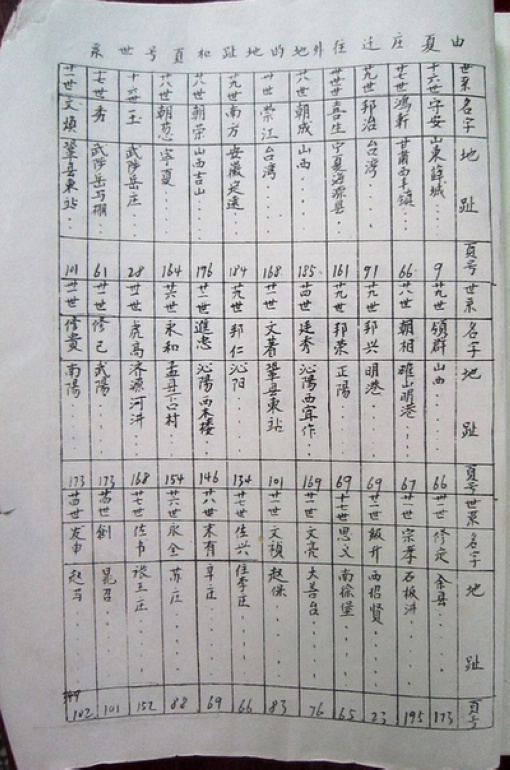 由夏庄迁住外地的地趾和頁号世系
世系 名字 地趾 頁号 世系 名字 地趾 頁号 世系 名字 地趾 頁号
十六世 守安 山東薛城 9 廿九世 领群 山西 66 廿二世 修定 余县 173
廿七世 鴻新 甘肅西丰镇 66 廿八世 朝相 確山明港 67 廿一世 宗孝 石板洪 195
廿九世 邦治 台湾 91 廿九世 邦兴 明港 69 廿二世 振升 西招賢 23
喜生 宁夏海源县 161 廿九世 邦荣 正陽 69 十七世 思义 南徐堡 65
廿八世 朝成 山西 185 廿四世 廷秀 沁陽西宜作 169 廿一世 文亮 大善台 76
廿世 荣江 台湾 168 廿一世 文著 鞏县東站 101 廿一世 文禎 赵保 83
廿九世 南方 安徽定遠 184 廿九世 邦仁 沁阳 134 廿七世 佐兴 住李庄 66
廿八世 朝荣 山西吉山 176 廿二世 進忠 沁陽西木楼 146 廿八世 来有 草庄 69
廿八世 朝恩 宁夏 164 廿六世 永和 孟县古村 154 廿六世 永全 苏庄 88
十六世 玉 武陟岳庄 28 廿世 虎高 济源河洪 168 廿七世 佐书 张王庄 152
十七世 秀 武陟岳马棚 61 廿二世 修己 武陽 173 廿四世 创 晁召 101
廿一世 文煩 鞏县東站 101 廿二世 修貴 南陽 173 廿四世 发申 赵马 102